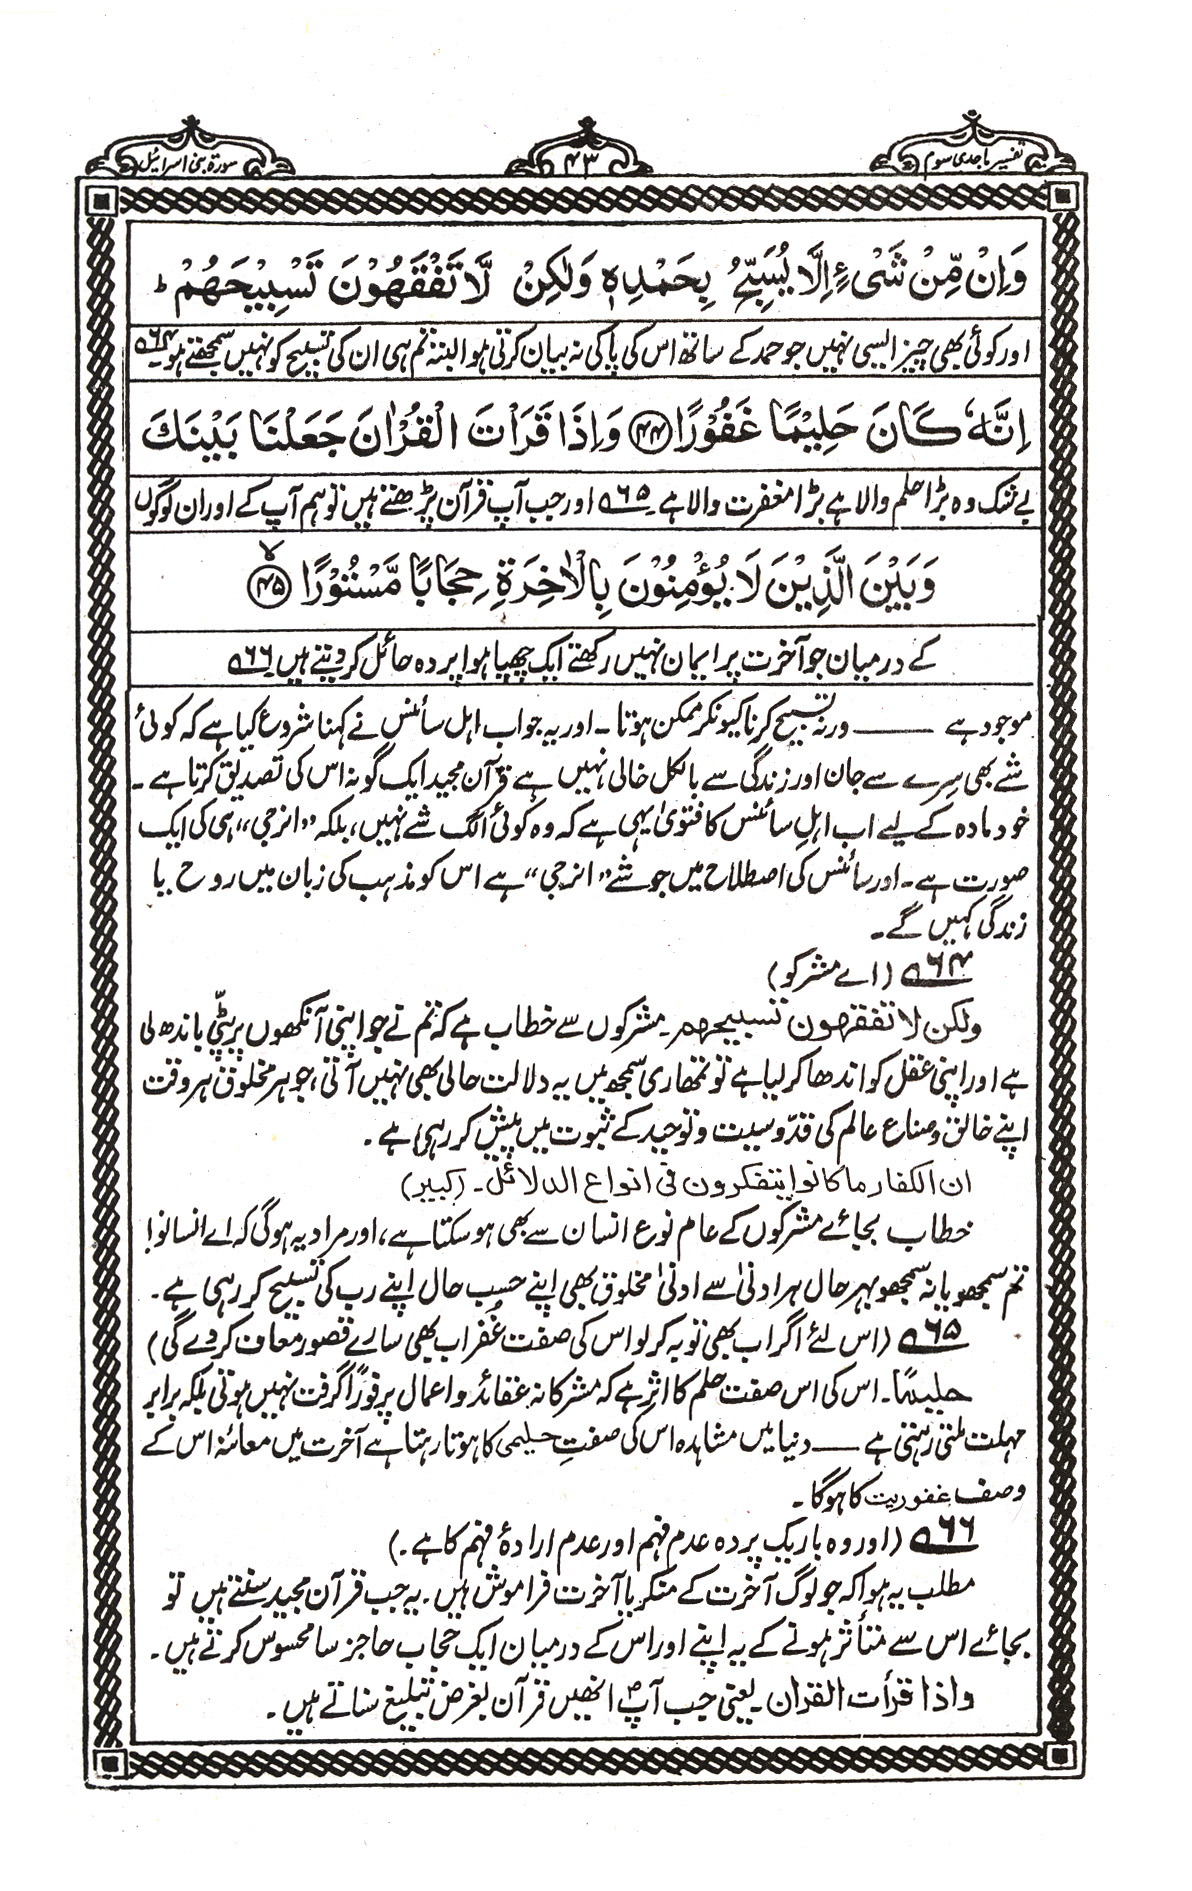 تفسیر ماجدی سوم
۴۳
سورۃ بنی اسرائیل
وَاِنْ مِّنْ شَیْءٍ اِلَّا یُسَبِّحُ بِحَمْدِهٖ وَلٰكِنْ لَّا تَفْقَهُوْنَ تَسْبِیْحَهُمْ ؕ
اور کوئی بھی چیز ایسی نہیں جو حمد کے ساتھ اس کی پاکی نہ بیان کرتی ہو البتہ تم ہی ان کی تسبیح کو نہیں سمجھتے ہو ۵۶۴
اِنَّهٗ كَانَ حَلِیْمًا غَفُوْرًا ﴿۴۴﴾ وَاِذَا قَرَاْتَ الْقُرْاٰنَ جَعَلْنَا بَیْنَكَ
بے شک وہ بڑا حلم والا ہے بڑا مغفرت والا ہے ۵۶۵ اور جب آپ قرآن پڑھتے ہیں تو ہم آپ کے اور ان لوگوں
وَبَیْنَ الَّذِیْنَ لَا یُؤْمِنُوْنَ بِالْاٰخِرَةِ حِجَابًا مَّسْتُوْرًا ﴿۴۵﴾ لا
کے درمیان جو آخرت پر ایمان نہیں رکھتے ایک چھپا ہوا پردہ حائل کر دیتے ہیں ۵۶۶
موجود ہے ــــــ ورنہ تسبیح کرنا کیونکر ممکن ہوتا۔ اور یہ جو اب اہل سائنس نے کہنا شروع کیا ہے کہ کوئی
شے بھی سرے سے جان اور زندگی سے بالکل خالی نہیں ہے قرآن مجید ایک گونہ اس کی تصدیق کرتا ہے۔
خود مادہ کے لیے اب اہلِ سائنس کا فتویٰ یہی ہے کہ وہ کوئی الگ شے نہیں، بلکہ ”انرجی“ ہی کی ایک
صورت ہے۔ اور سائنس کی اصطلاح میں جو شے ”انرجی“ ہے اس کو مذہب کی زبان میں روح یا
زندگی کہیں گے۔
۵۶۴ (اے مشرکو)
ولكن لا تفقهون تسبيحهم۔ مشرکوں سے خطاب ہے کہ تم نے جو اپنی آنکھوں پر پٹّی باندھ لی
ہے اور اپنی عقل کو اندھا کر لیا ہے تو تمھاری سمجھ میں یہ دلالت حالی بھی نہیں آتی، جو ہر مخلوق ہر وقت
اپنے خالق و صناع عالم کی قدّوسیت و توحید کے ثبوت میں پیش کر رہی ہے۔
ان الكفار ما كانوا يتفكرون فى انواع الدلائل۔ (كبير)
خطاب بجائے مشرکوں کے عام نوع انسان سے بھی ہو سکتا ہے، اور مراد یہ ہوگی کہ اے انسانو!
تم سمجھو یا نہ سمجھو بہرحال ہر ادنیٰ سے ادنیٰ مخلوق بھی اپنے حسب حال اپنے رب کی تسبیح کر رہی ہے۔
۵۶۵ (اس لئے اگر اب بھی توبہ کر لو اس کی صفت غُفراب بھی سارے قصور معاف کر دے گی)
حليمًا۔ اس کی اس صفت حلم کا اثر ہے کہ مشرکانہ عقائد و اعمال پر فوراً گرفت نہیں ہوتی بلکہ برابر
مہلت ملتی رہتی ہے ــــ دنیا میں مشاہدہ اس کی صفتِ حلیمی کا ہوتا رہتا ہے آخرت میں معائنہ اس کے
وصف غفوریت کا ہوگا۔
۵۶۶ (اور وہ باریک پردہ عدم فہم اور عدم ارادۂ فہم کا ہے۔)
مطلب یہ ہوا کہ جو لوگ آخرت کے منکر یا آخرت فراموش ہیں۔ یہ جب قرآن مجید سنتے ہیں تو
بجائے اس سے متأثر ہونے کے یہ اپنے اور اس کے درمیان ایک حجاب حاجز سا محسوس کرتے ہیں۔
واذا قرأت القران۔ یعنی جب آپؐ انھیں قرآن بغرض تبلیغ سناتے ہیں۔